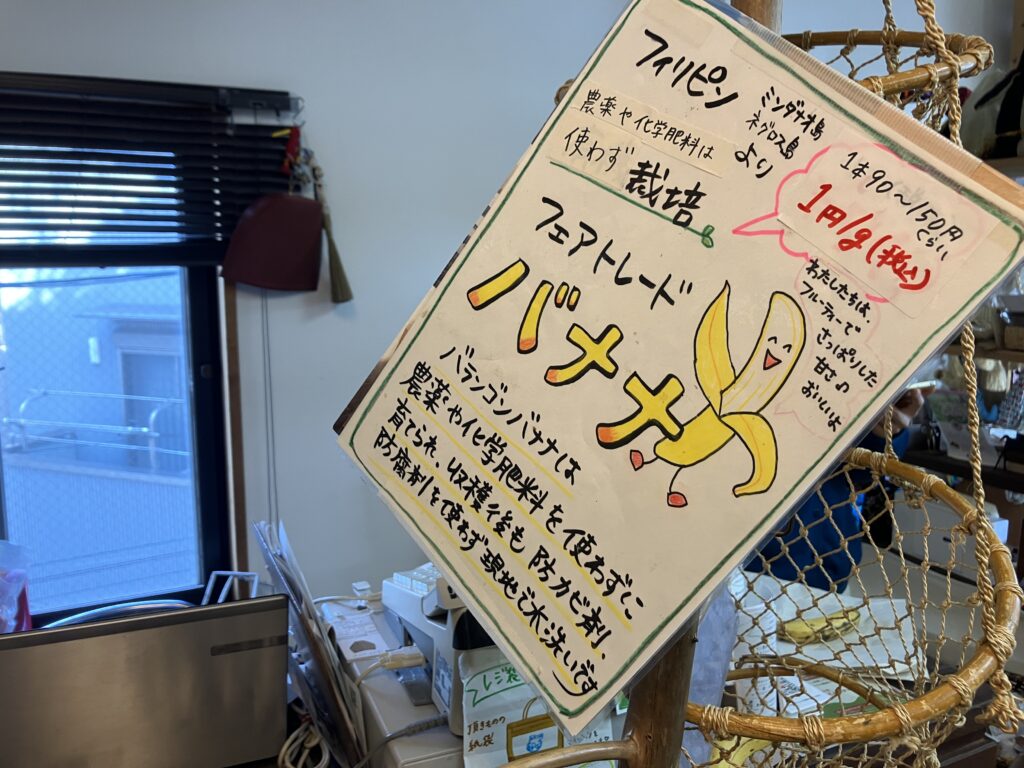 フィリピン
ミンダナオ島
ネグロス島
より
農薬や化学肥料は
使わず栽培
1本90〜150円
くらい
1円/g(税込)
フェアトレード
バナナ
わたしたちは
フルーティーで
さっぱりした
甘さ♪
おいしいよ
バランゴンバナナは
農薬や化学肥料を使わずに
育てられ、収穫後も防カビ剤、
防腐剤を使わず現地で水洗いです
レジ袋
頂きもの
紙袋